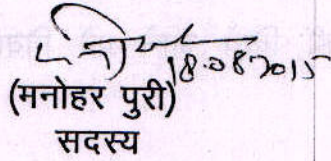 18.08.2015
(मनोहर पुरी)
सदस्य